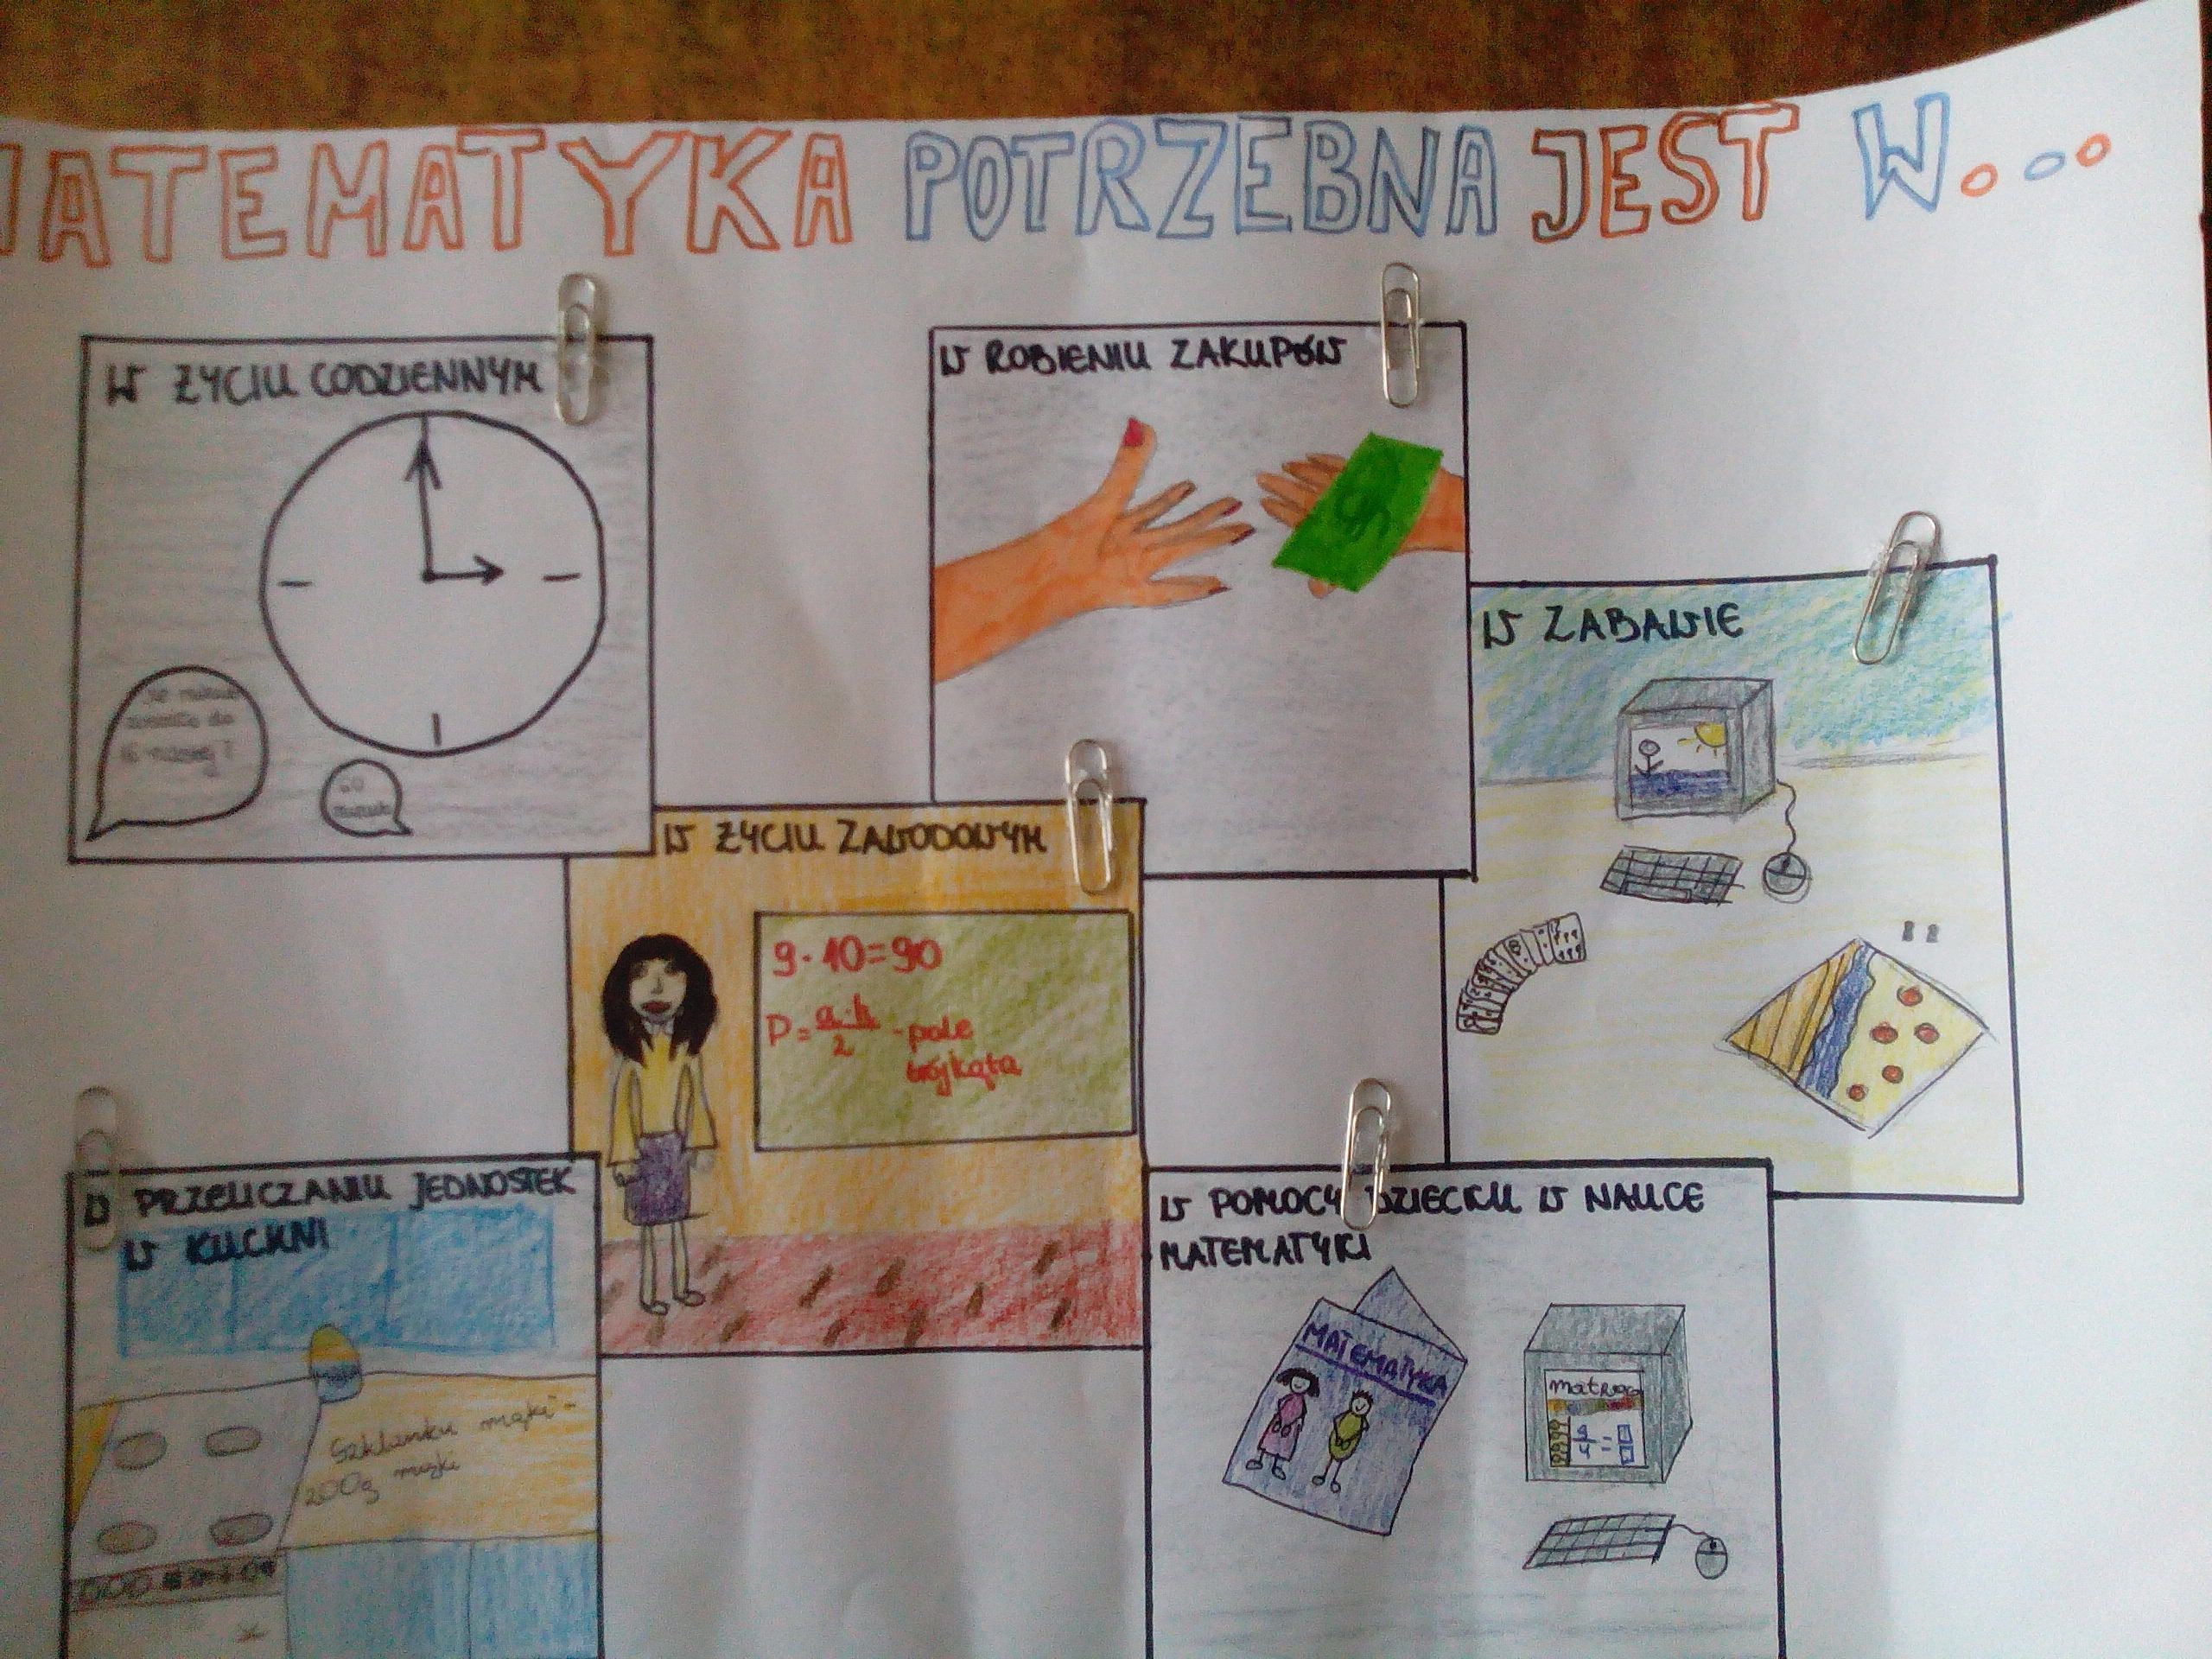 MATEMATYKA POTRZEBNA JEST W...
W ŻYCIU CODZIENNYM
W ROBIENIU ZAKUPÓW
W ZABAWIE
W ŻYCIU ZAWODOWYM
9·10=90
P = a·h/2 - pole
trójkąta
W PRZELICZANIU JEDNOSTEK
W KUCHNI
Szklanku mąki -
200g mąki
W POMOCY DZIECKU W NAUCE
MATEMATYKI
MATEMATYKA